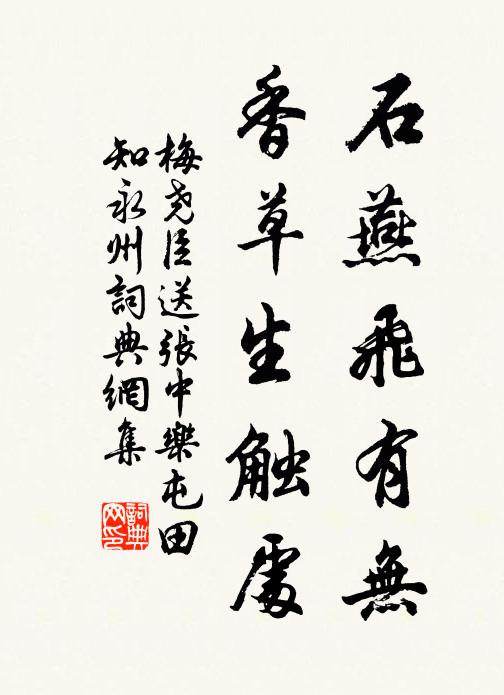 石燕飛有無
香草生触處
梅堯臣送張中樂屯田
知永州詞典網集
詞典网印